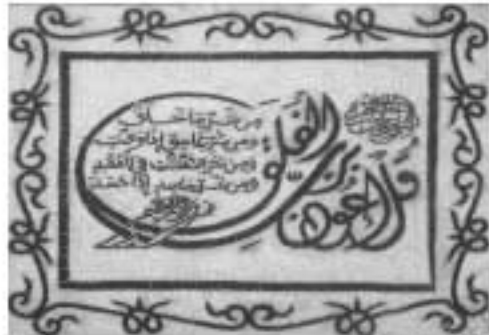 قل اعوذ برب الفلق
من شر ما خلق
ومن شر غاسق اذا وقب
ومن شر النفثت في العقد
ومن شر حاسد اذا حسد